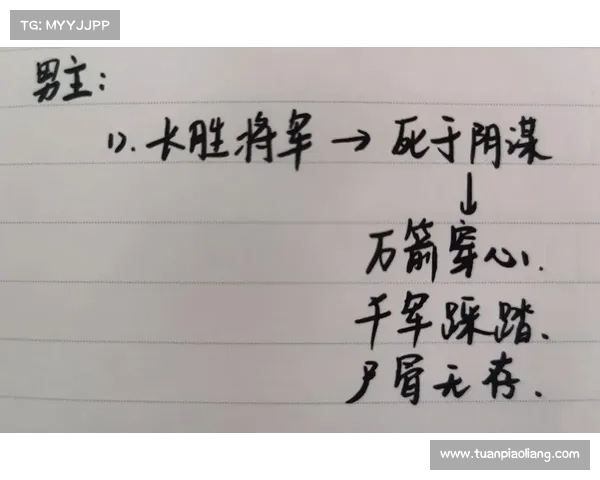 TG: MYYJJPP
男主:
1). 长胜将军 → 死于阴谋
↓
万箭穿心、
千军踩踏、
尸骨无存.
www.tuanpiaoliang.com